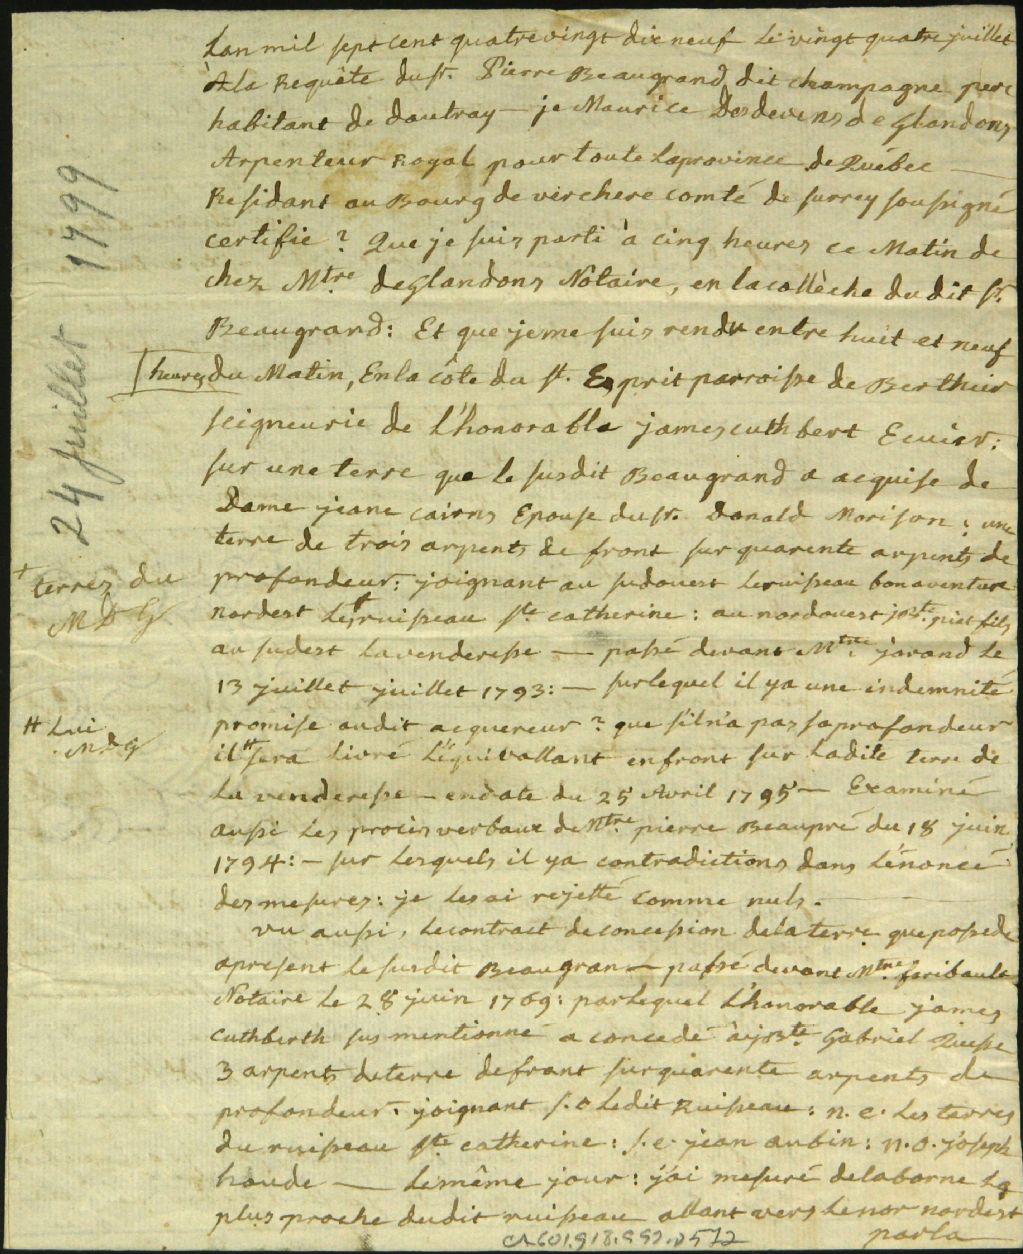 Lan mil sept cent quatrevingt dixneuf Le vingt quatre juillet
A la Requête du sr. Pierre Beaugrand dit champagne pere
habitant de dautray — je Maurice Desdevens de Glandons
Arpenteur Royal pour toute Laprovince de Québec —
Residant au Bourg de verchere comté de surrey soussigné
certifie ? Que je suis parti à cinq heures ce Matin de
chez Mtre deGlandons Notaire, en lacallèche du dit sr.
Beaugrand : Et que jeme suis rendu entre huit et neuf
heures du Matin, En la côte du st. Esprit parroisse de Berthier
seigneurie de L'honorable james cuthbert Ecuier :
sur une terre que le susdit Beaugrand a acquise de
Dame jeane cairns Epouse du sr. Donald Morison ; une
terre de trois arpents de front sur quarente arpents de
profondeur : joignant au sudouest Leruisseau bonaventure
nordest Les + ruisseau ste catherine : au nordouest jBte. piet fils
au sudest Lavenderesse — passé devant Mtre jarand Le
13 juillet juillet 1793 : — surlequel il ya une indemnité
promise audit acquereur ? que s'iln'a pas saprofondeur
il # sera Livré L'équivallant enfront sur Ladite terre de
La venderesse — endate du 25 Avril 1795 — Examiné
aussi Les procès verbaux de Mtre pierre Beaupré du 18 juin
1794 : — sur Lesquels il ya contradictions dans L'énoncé
des mesures : je Les ai rejetté comme nuls .
vu aussi , Lecontract deconcession delaterre queposede
apresent Le susdit Beaugran — passé devant Mtre faribault
Notaire Le 28 juin 1769 : parLequel L'honorable james
Cuthberth sus mentionné a concedé à jBte Gabriel
3 arpents deterre defrant surquarente arpents de
profondeur , joignant s. o Ledit Ruisseau : n. e. Les terres
du ruisseau ste catherine : s. e. jean aubin : n. o. joseph
houde — Lemême jour : j'ai mesuré delaborne La
plus proche dudit ruisseau allant vers Lenor nordest
parla
24 juillet 1799
+ terres du
M D G
# Lui
M D G
CA601,S18,SS2,D572